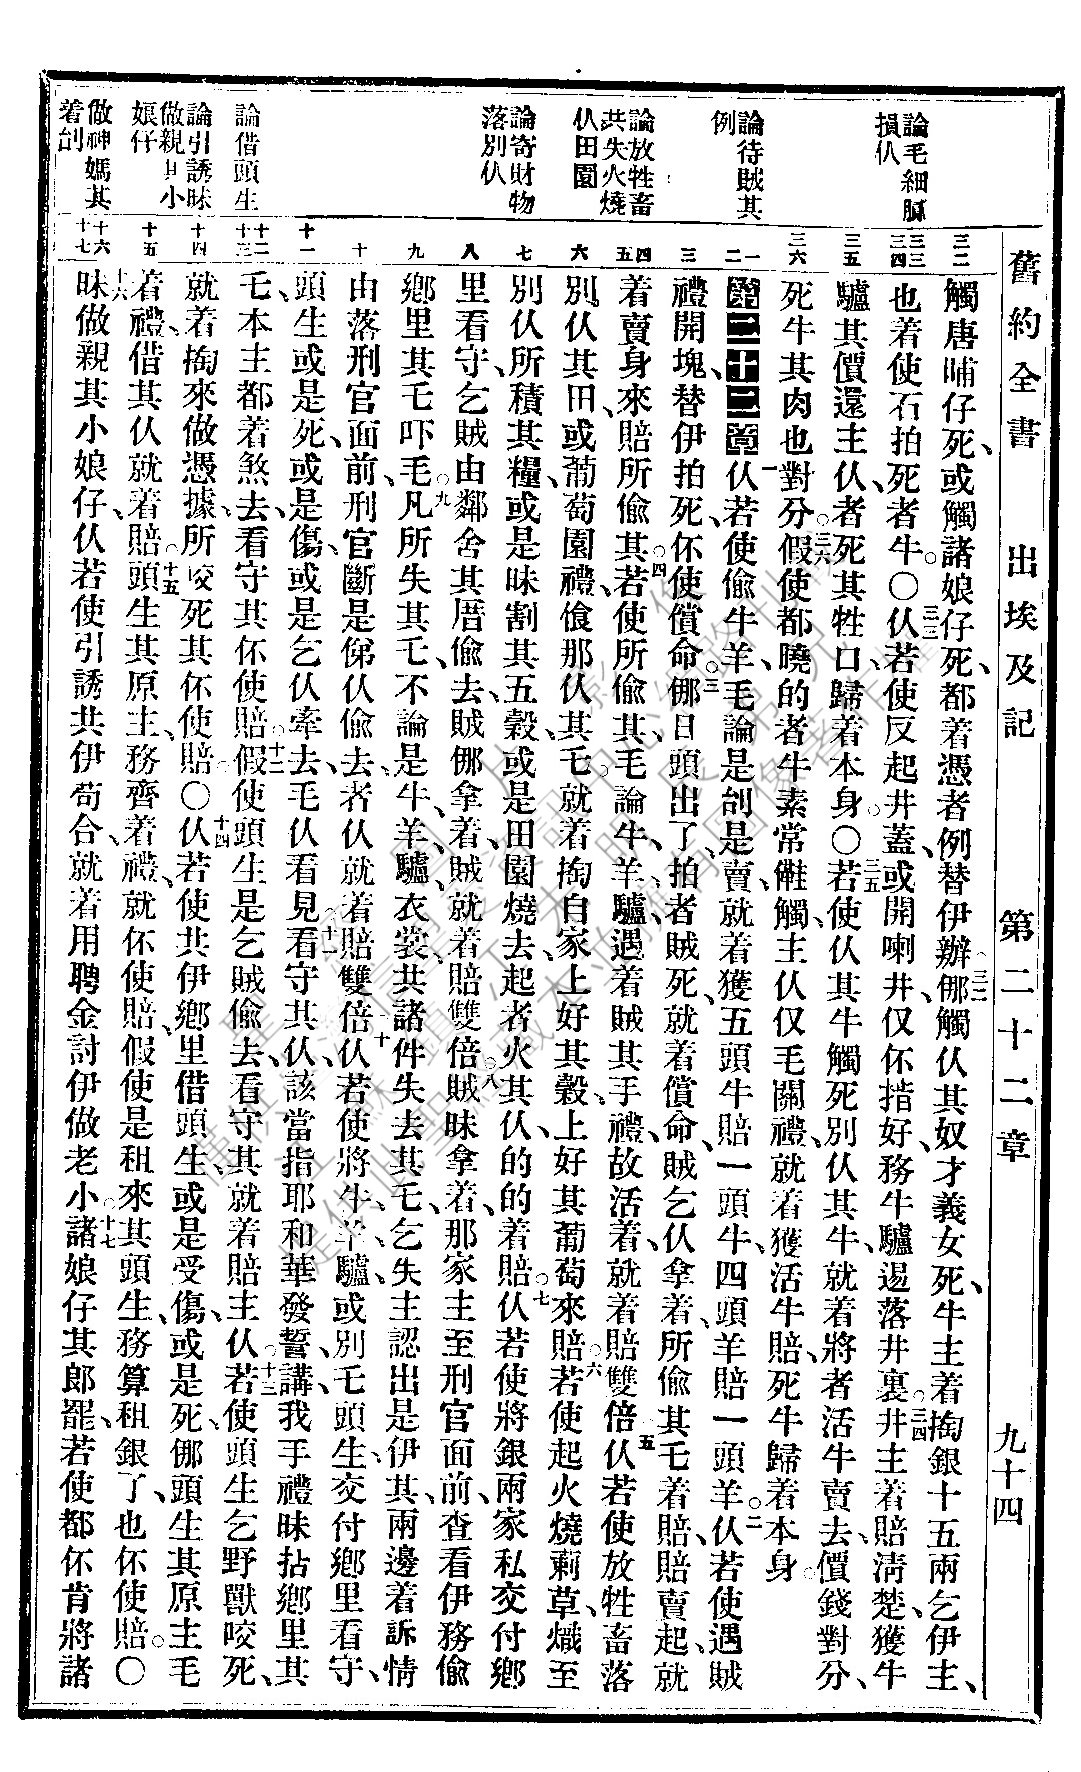 舊約全書 出埃及記 第二十二章 九十四
論毛細膩損仫
論待賊其例
論放牲畜共失火燒仫田園
論寄財物落別仫
論借頭生
論引誘昧做親其小娘仔
做神媽其着刣
三二 三三 三四 三五 三六 一 二 三 四 五 六 七 八 九 十 十一 十二 十三 十四 十五 十六 十七
觸唐晡仔死、或觸諸娘仔死、都着憑者例替伊辦、三二倻觸仫其奴才義女死、牛主着掏銀十五兩乞伊主、
也着使石拍死者牛。〇三三仫若使反起井蓋、或開喇井、仅伓揩好、務牛驢逿落井裏、三四井主着賠淸楚、獲牛
驢其價還主仫、者死其牲口、歸着本身。〇三五若使仫其牛觸死別仫其牛、就着將者活牛賣去、價錢對分、
死牛其肉也對分。三六假使都曉的者牛素常㒁觸、主仫仅毛關禮、就着獲活牛賠、死牛歸着本身。
第二十二章 一仫若使偷牛羊、毛論是刣是賣、就着獲五頭牛賠一頭牛、四頭羊賠一頭羊。二仫若使遇賊
禮開塊、替伊拍死、伓使償命。三倻日頭出了、拍者賊死、就着償命、賊乞仫拿着、所偷其乇着賠、賠賣起、就
着賣身來賠所偷其。四若使所偷其、毛論牛羊驢、遇着賊其手禮、故活着、就着賠雙倍。五仫若使放牲畜落
別仫其田、或葡萄園禮、飡那仫其乇、就着掏自家上好其穀、上好其葡萄來賠。六若使起火燒莿草、熾至
別仫所積其糧、或是昧割其五穀、或是田園燒去、起者火其仫、的的着賠。七仫若使將銀兩家私交付鄉
里看守、乞賊由鄰舍其厝偷去、賊倻拿着、賊就着賠雙倍。八賊昧拿着、那家主至刑官面前、查看伊務偷
鄉里其乇吓毛。九凡所失其乇、不論是牛羊驢衣裳共諸件失去其乇、乞失主認出是伊其、兩邊着訴情
由落刑官面前、刑官斷是俤仫偷去、者仫就着賠雙倍。十仫若使將牛羊驢、或別乇頭生、交付鄉里看守、
頭生或是死、或是傷、或是乞仫牽去、毛仫看見、十一看守其仫、該當指耶和華發誓講、我手禮昧拈鄉里其
乇、本主都着煞去、看守其伓使賠。十二假使頭生是乞賊偷去、看守其就着賠主仫。十三若使頭生乞野獸咬死、
就着掏來做憑據、所咬死其伓使賠。〇十四仫若使共伊鄉里借頭生、或是受傷、或是死、倻頭生其原主毛
着禮、借其仫就着賠。十五頭生其原主、務齊着禮、就伓使賠、假使是租來其頭生、務算租銀了、也伓使賠。〇
十六昧做親其小娘仔、仫若使引誘共伊苟合、就着用聘金討伊做老小。十七諸娘仔其郎罷、若使都伓肯將諸